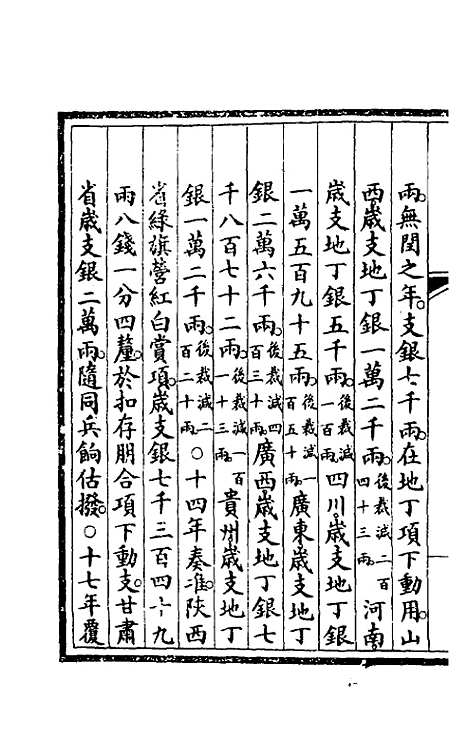 兩。無閏之年。支銀七千兩。在地丁項下動用。山
西。歲支地丁銀一萬二千兩。後裁減二百四十三兩。河南。
歲支地丁銀五千兩。後裁減一百五十兩。四川歲支地丁銀
一萬五百九十五兩。後裁減一百五十兩。廣東歲支地丁
銀二萬六千兩。後裁減四百三十兩。廣西歲支地丁銀七
千八百七十二兩。後裁減一百一十三兩。貴州歲支地丁
銀一萬二千兩。後裁減二百二十兩。○十四年奏准陝西
省綠旗營紅白賞項。歲支銀七千三百四十九
兩八錢一分四釐。於扣存朋合項下動支。甘肅
省歲支銀二萬兩。隨同兵餉估撥。○十七年覆